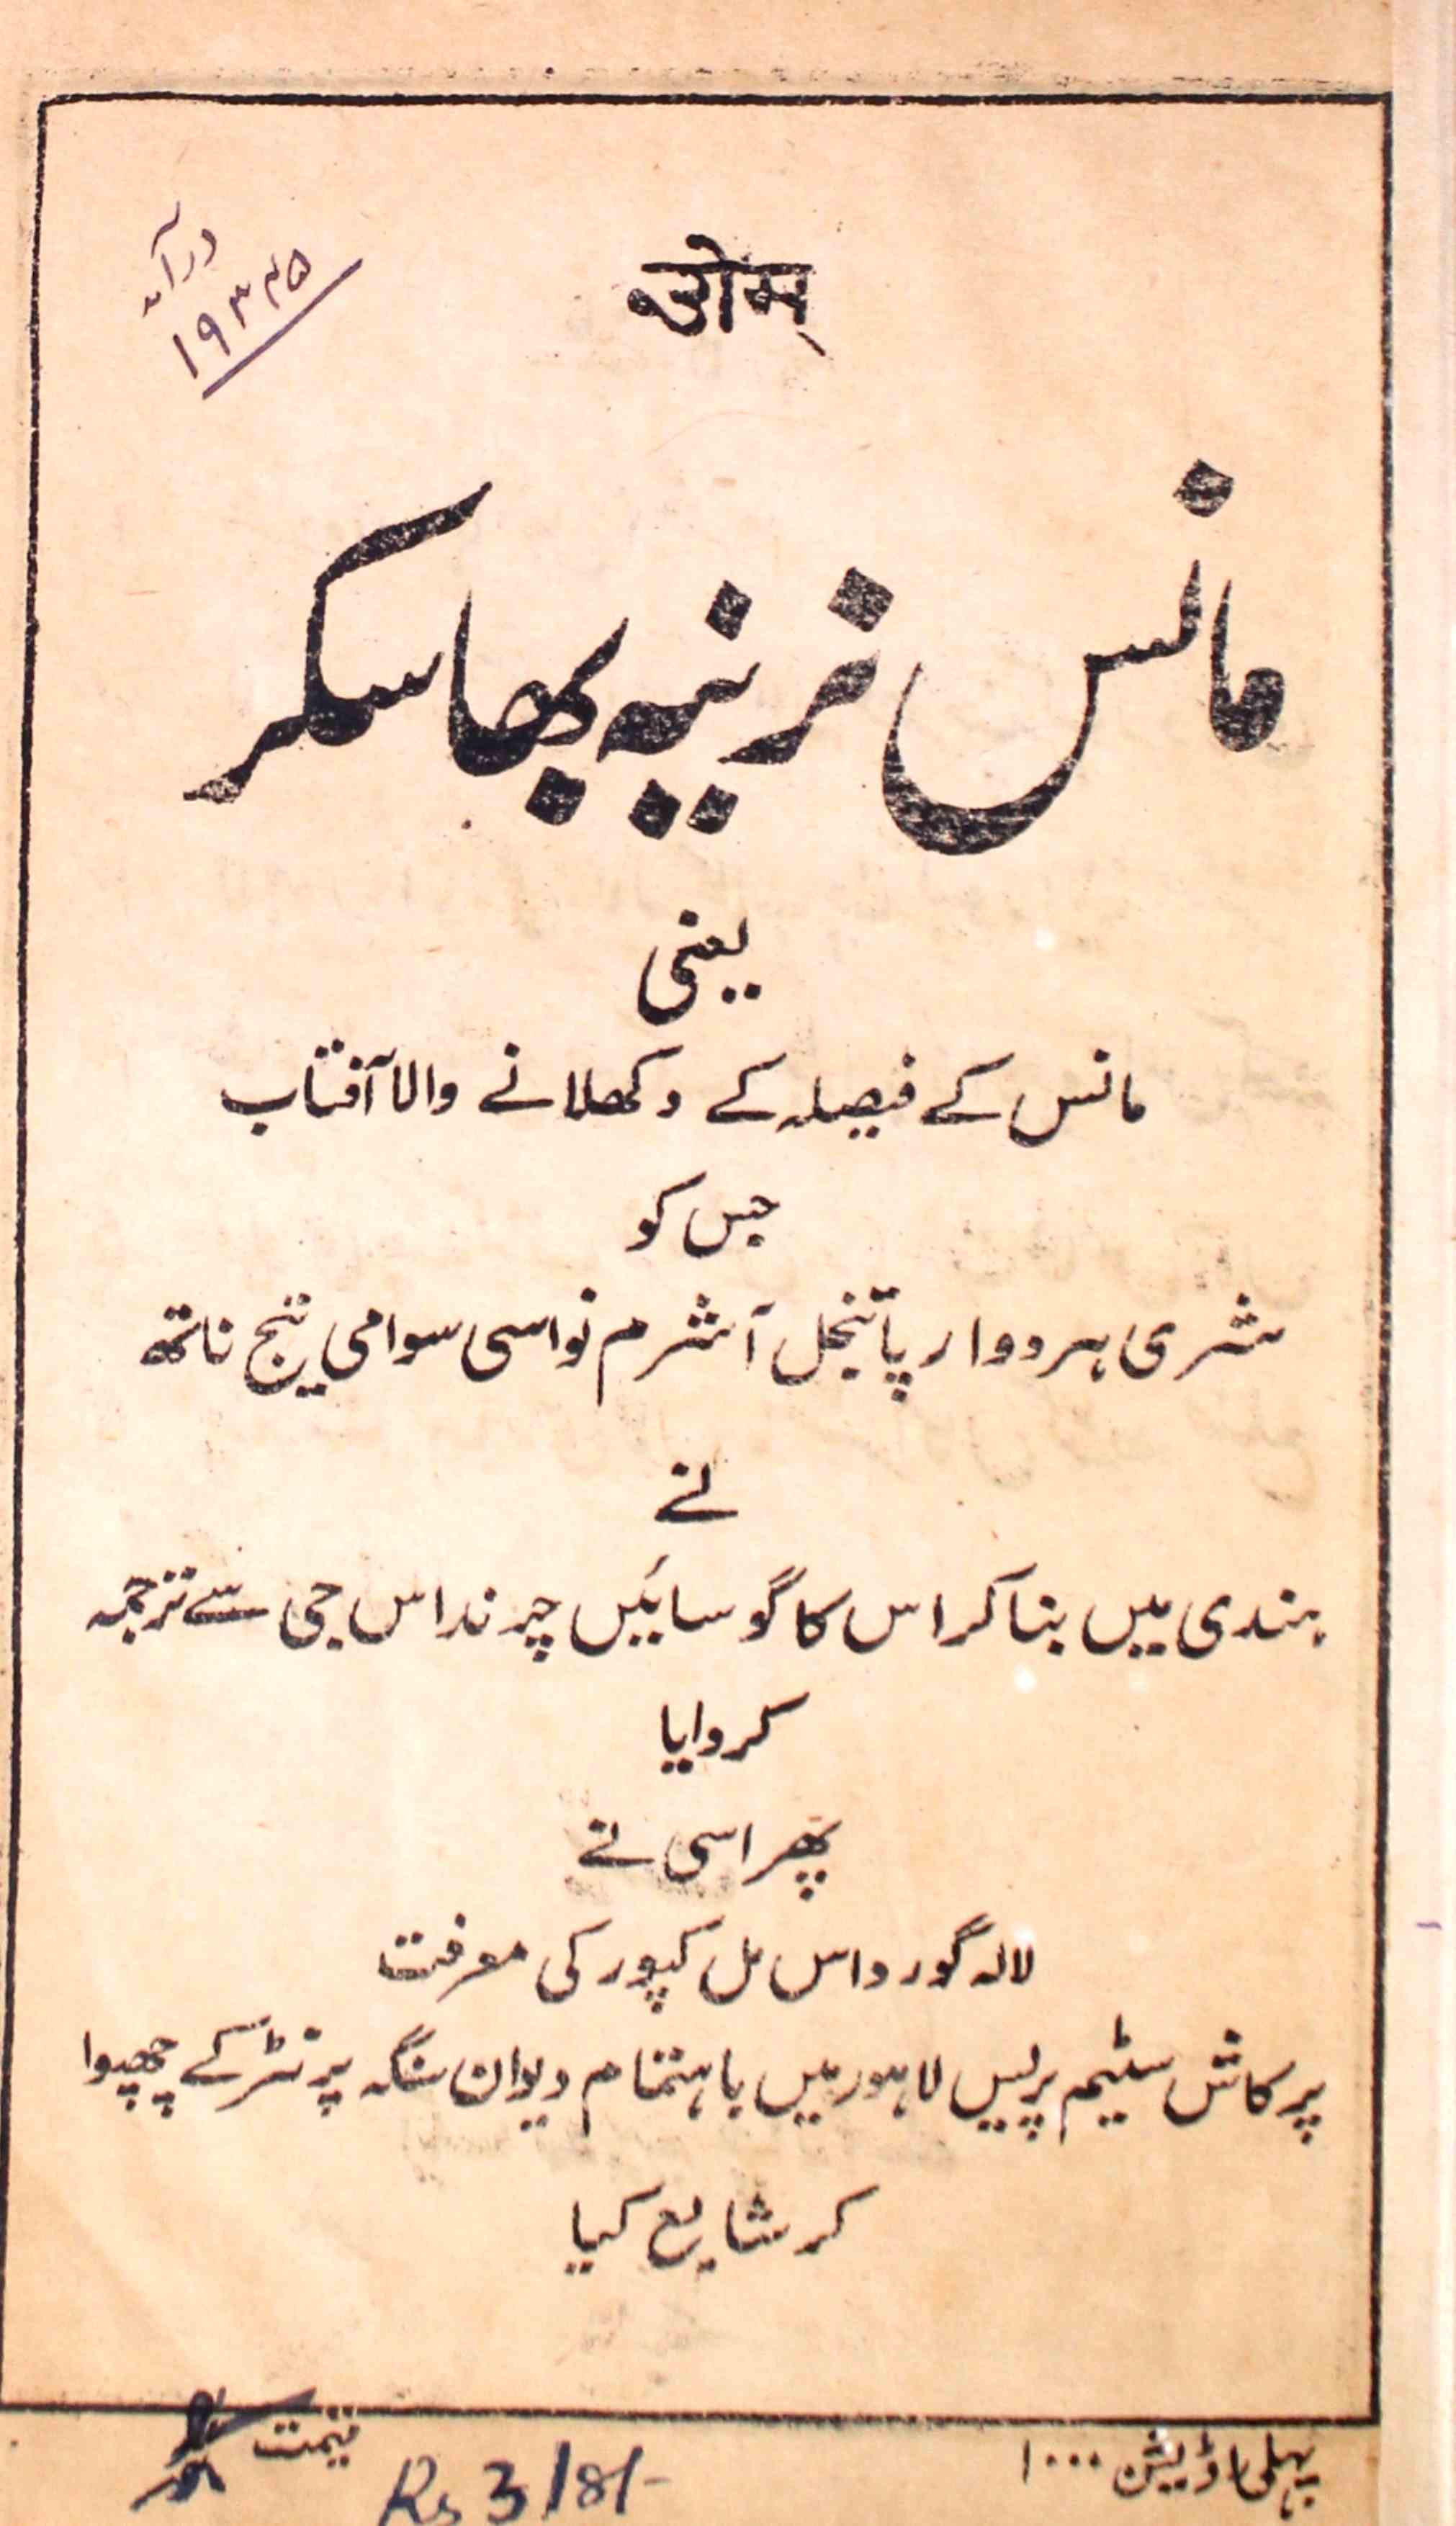 ओम्
درآمد
۱۹۳۴۵
مانس نرنیہ بھاسکر
یعنی
مانس کے فیصلہ کے دکھلانے والا آفتاب
جس کو
شری ہردوار پاتنجل آشرم نواسی سوامی تیج ناتھ
نے
ہندی میں بنا کر اس کا گوسائیں چرنداس جی سے ترجمہ
کروایا
پھر اسی نے
لالہ گورداس مل کپور کی معرفت
پرکاش سٹیم پریس لاہور میں باہتمام دیوان سنگہ پرنٹر کے چھپوا
کر شایع کیا
پہلی اڈیشن ۱۰۰۰
قیمت
Rs 3/8/-